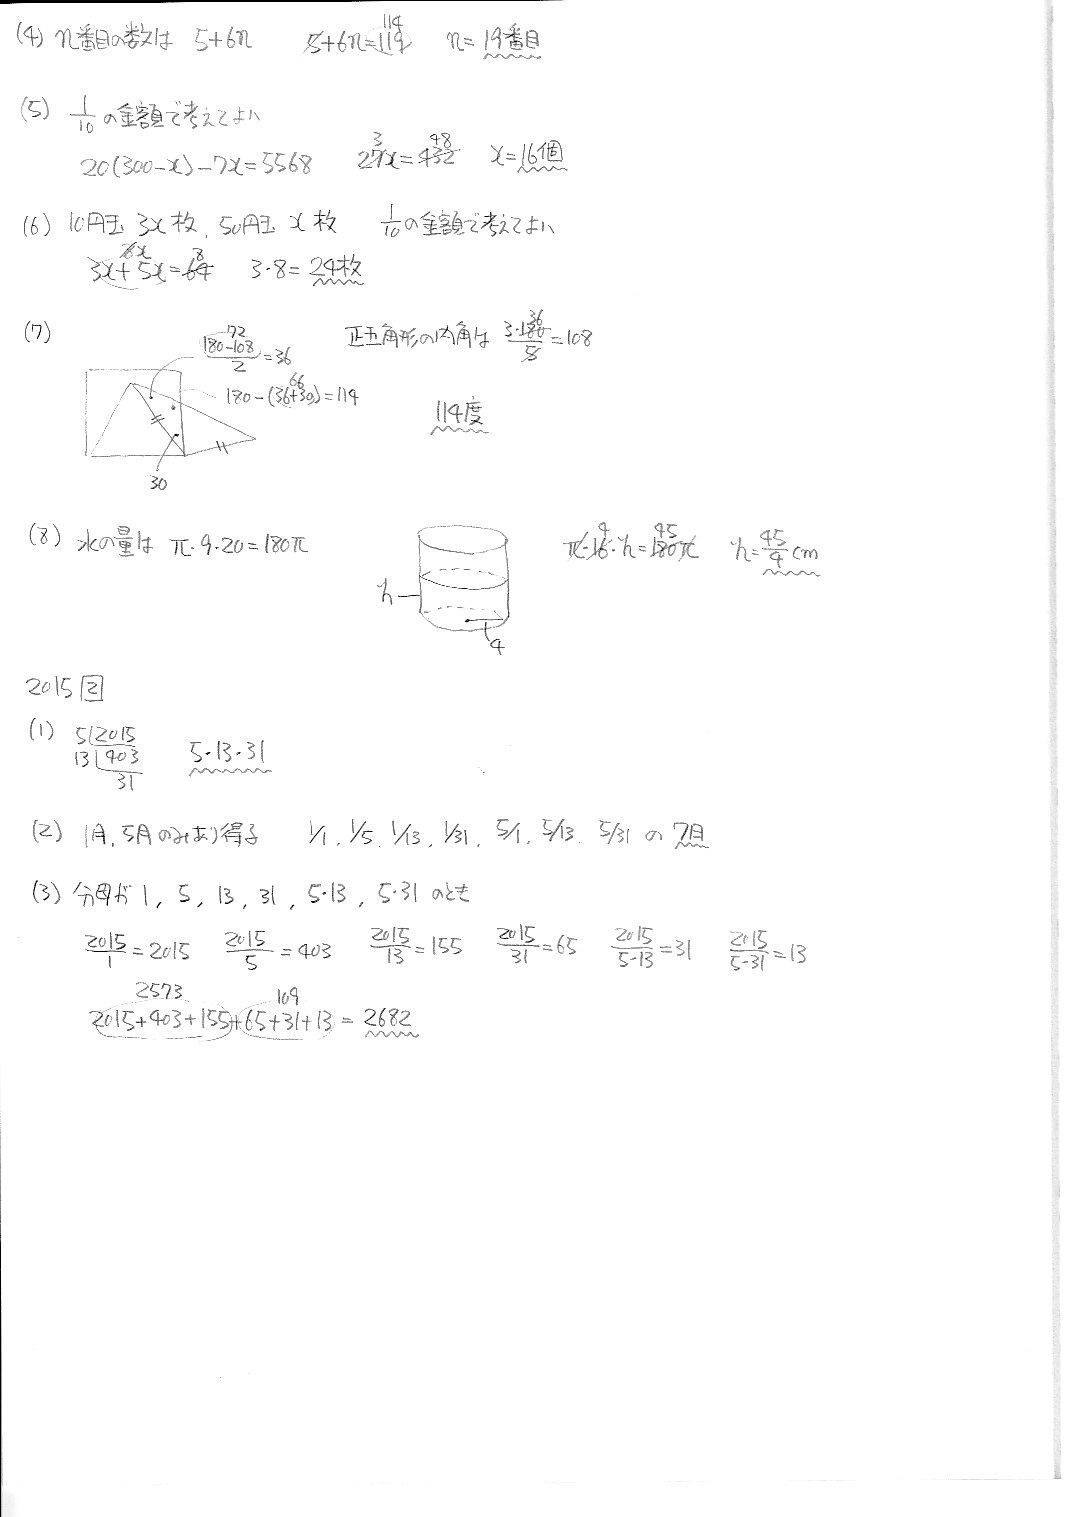 (4) n番目の数は 5+6n 5+6n=119 114 n=19番目
(5) 1/10の金額で考えてよい
20(300-x)-7x=5568 27x=432 3 48 x=16個
(6) 10円玉 3x枚, 50円玉 x枚 1/10の金額で考えてよい
3x+5x=64 8x 8 3・8=24枚
(7) 正五角形の内角は 3・180/5=108 36
72
(180-108)/2=36
180-(36+30)=114 66
114度
30
(8) 水の量は π・9・20=180π π・16・h=180π 4 45 h=45/4 cm
h
4
2015 2
(1) 5 2015
13 403
31
5・13・31
(2) 1月, 5月のみあり得る 1/1, 1/5, 1/13, 1/31, 5/1, 5/13, 5/31 の 7日
(3) 分母が 1, 5, 13, 31, 5・13, 5・31 のとき
2015/1=2015 2015/5=403 2015/13=155 2015/31=65 2015/5・13=31 2015/5・31=13
2573 109
2015+403+155+65+31+13=2682